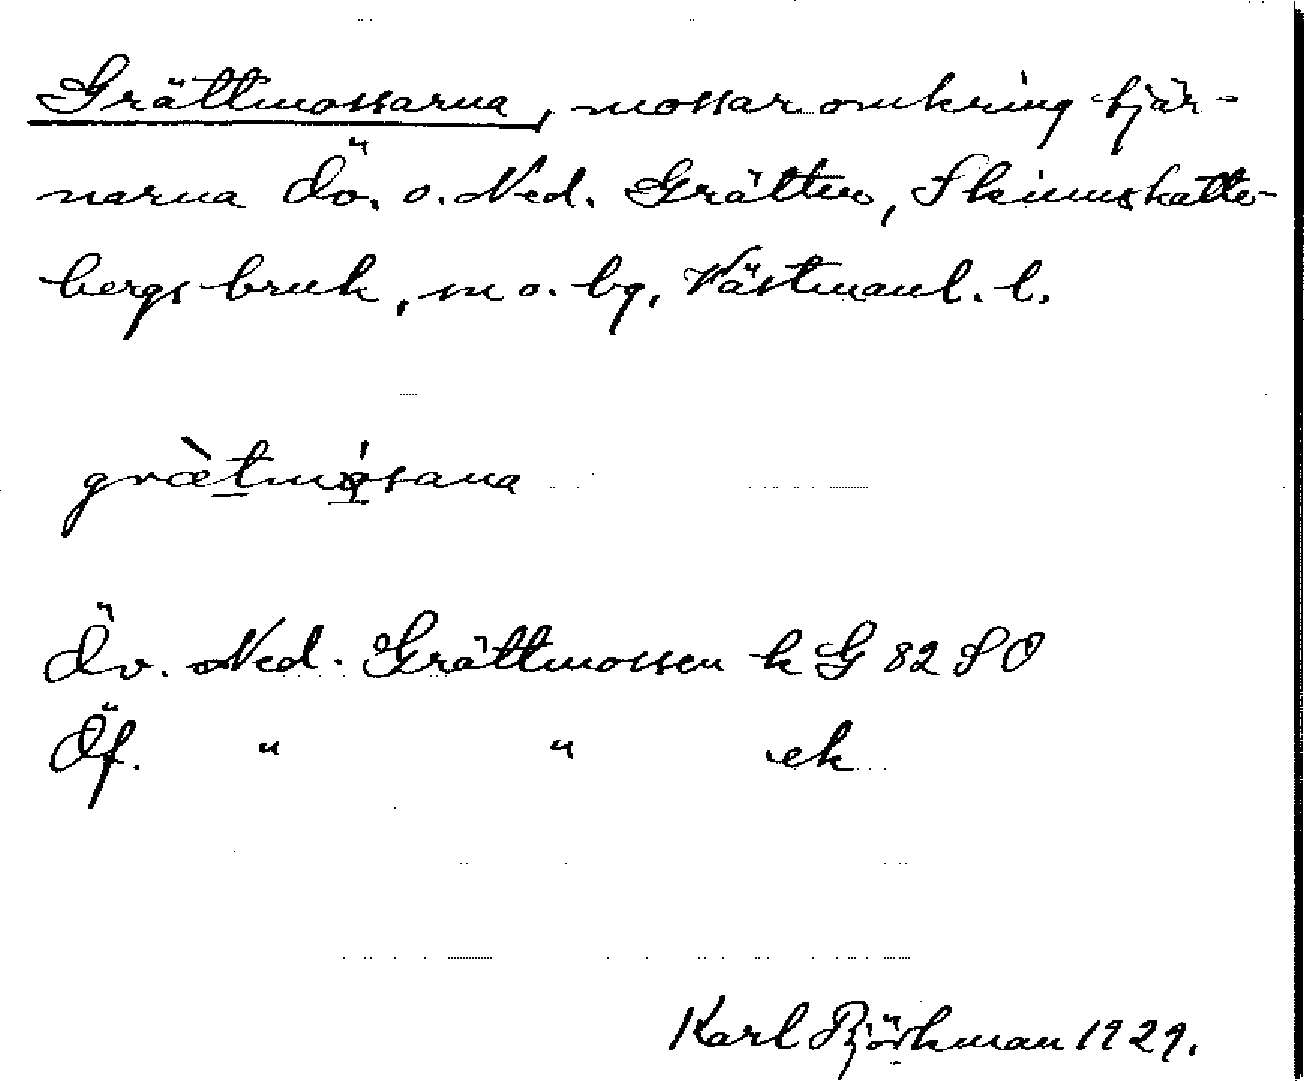 Grättmossarna, mossar omkring tjär-
narna Öv. o. Ned. Grätten, Skinnskatte-
bergs bruk, sn o. bg, Västmanl. l.
grætmosana
Öv. Ned. Grättmossen k G 82 S O
Öf. " " ek
Karl Björkman 1929.